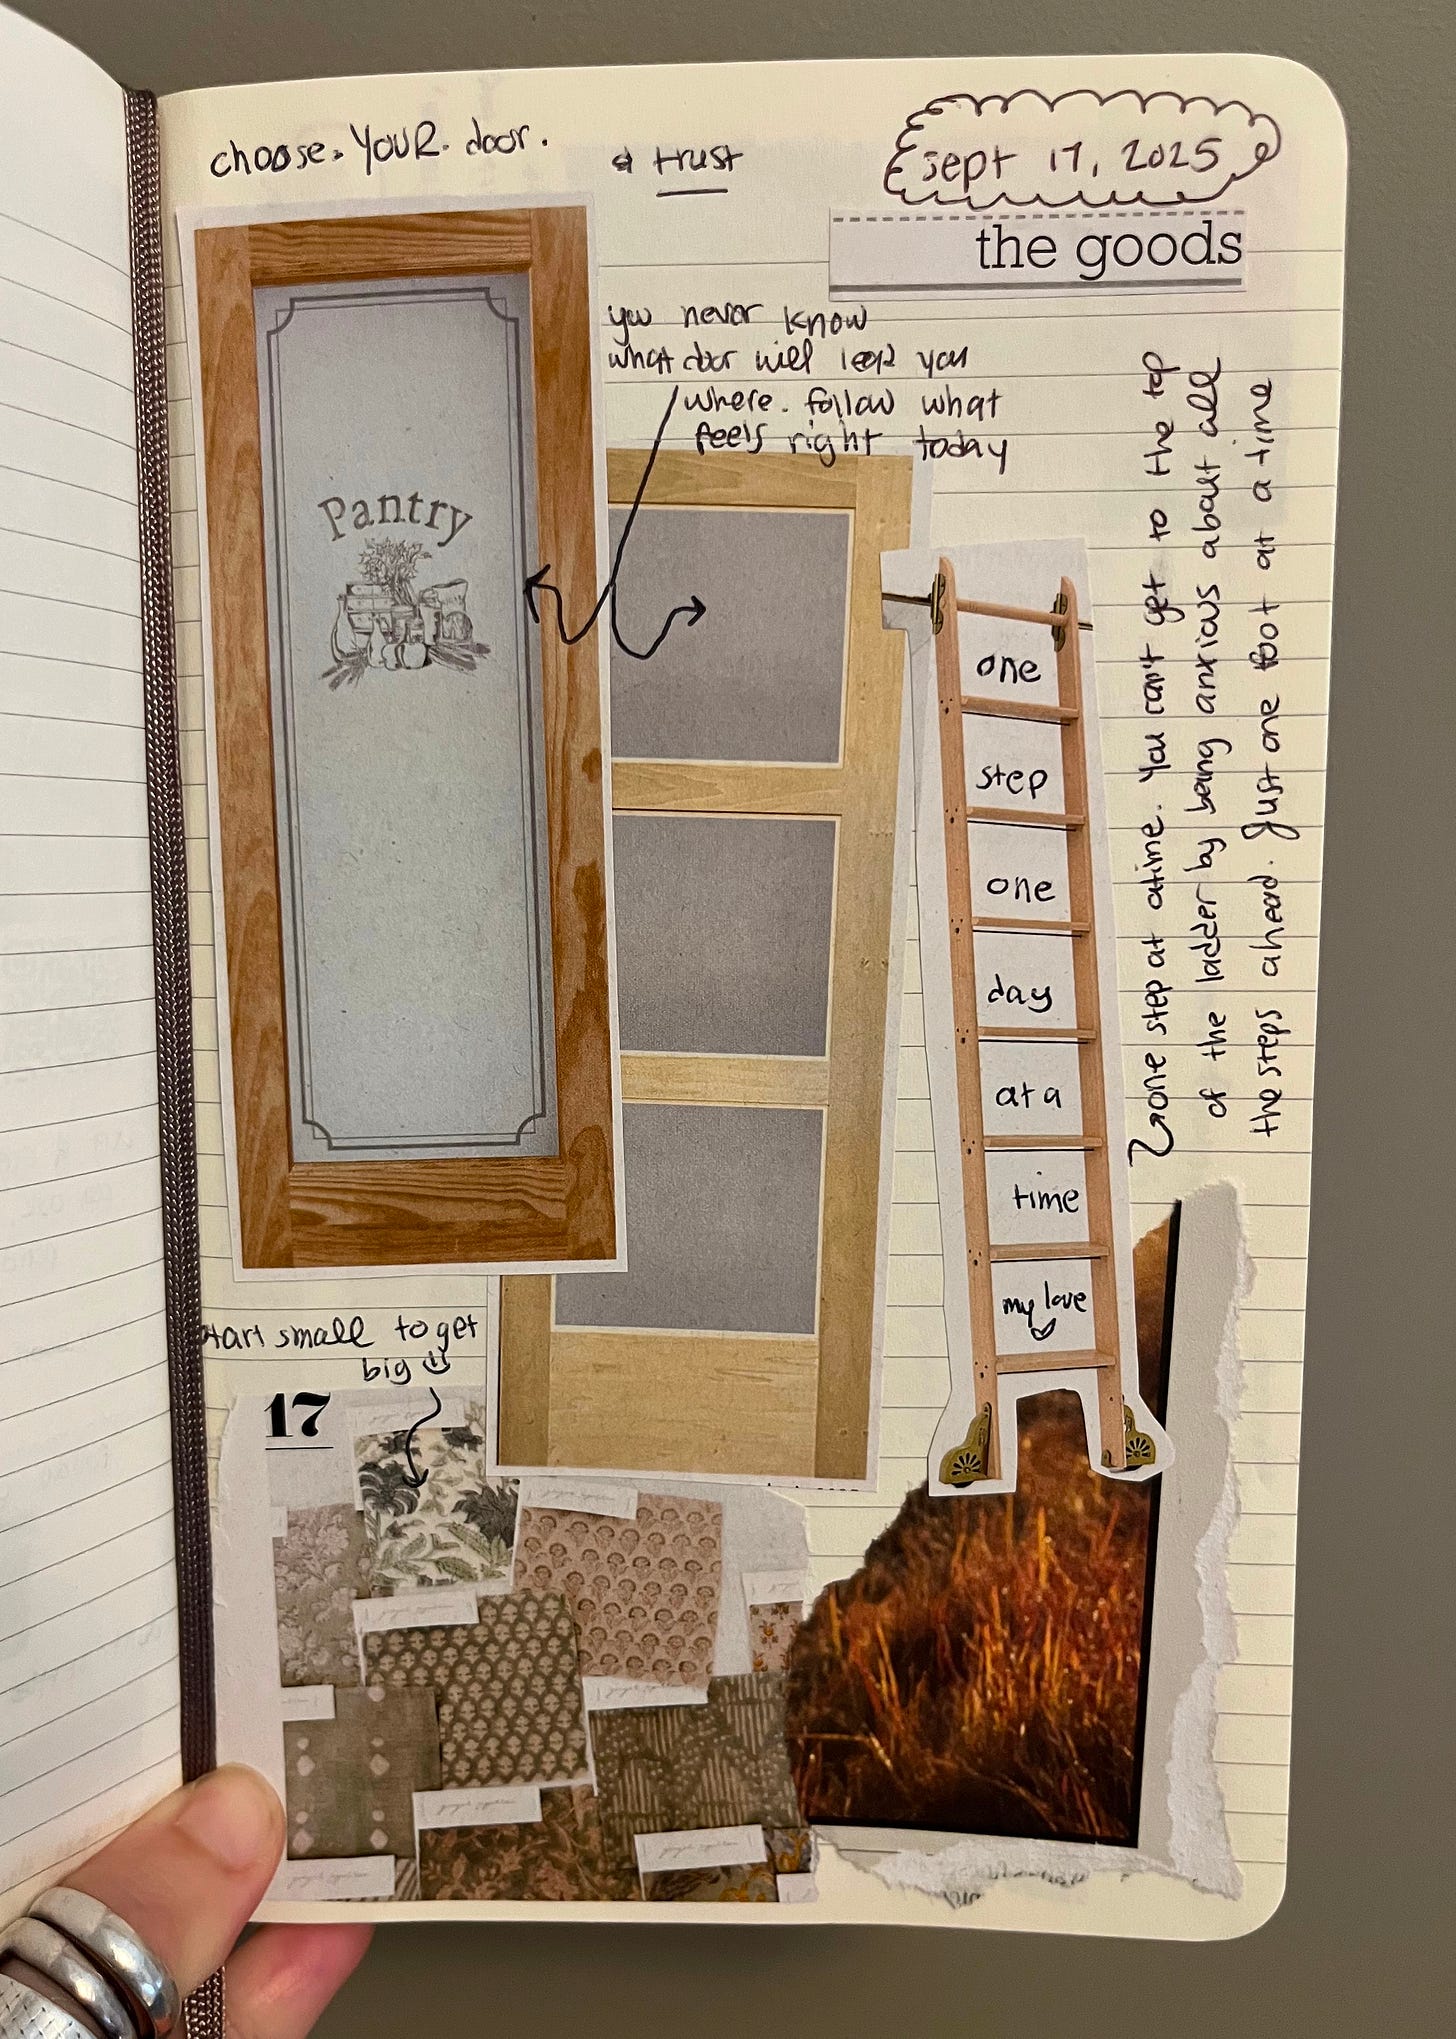 choose. YOUR. door.
& trust
sept 17, 2025
the goods
you never know
what door will lead you
where. follow what
feels right today
Pantry
one
step
one
day
at a
time
my love
one step at a time. You can't get to the top
of the ladder by being anxious about all
the steps ahead. Just one foot at a time
start small to get
big
17